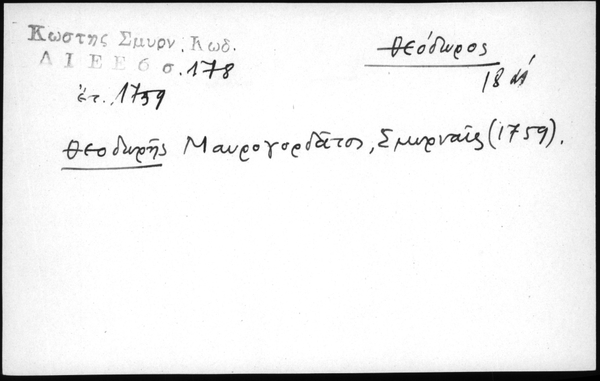 Κωστης Σμυρν. Κωδ.
ΔΙΕΕ 6 σ. 178
ἐτ. 1759
Θεόδωρος
18
Θεοδωρῆς Μαυρογορδᾶτοσ, Σμυρναῖος (1759).